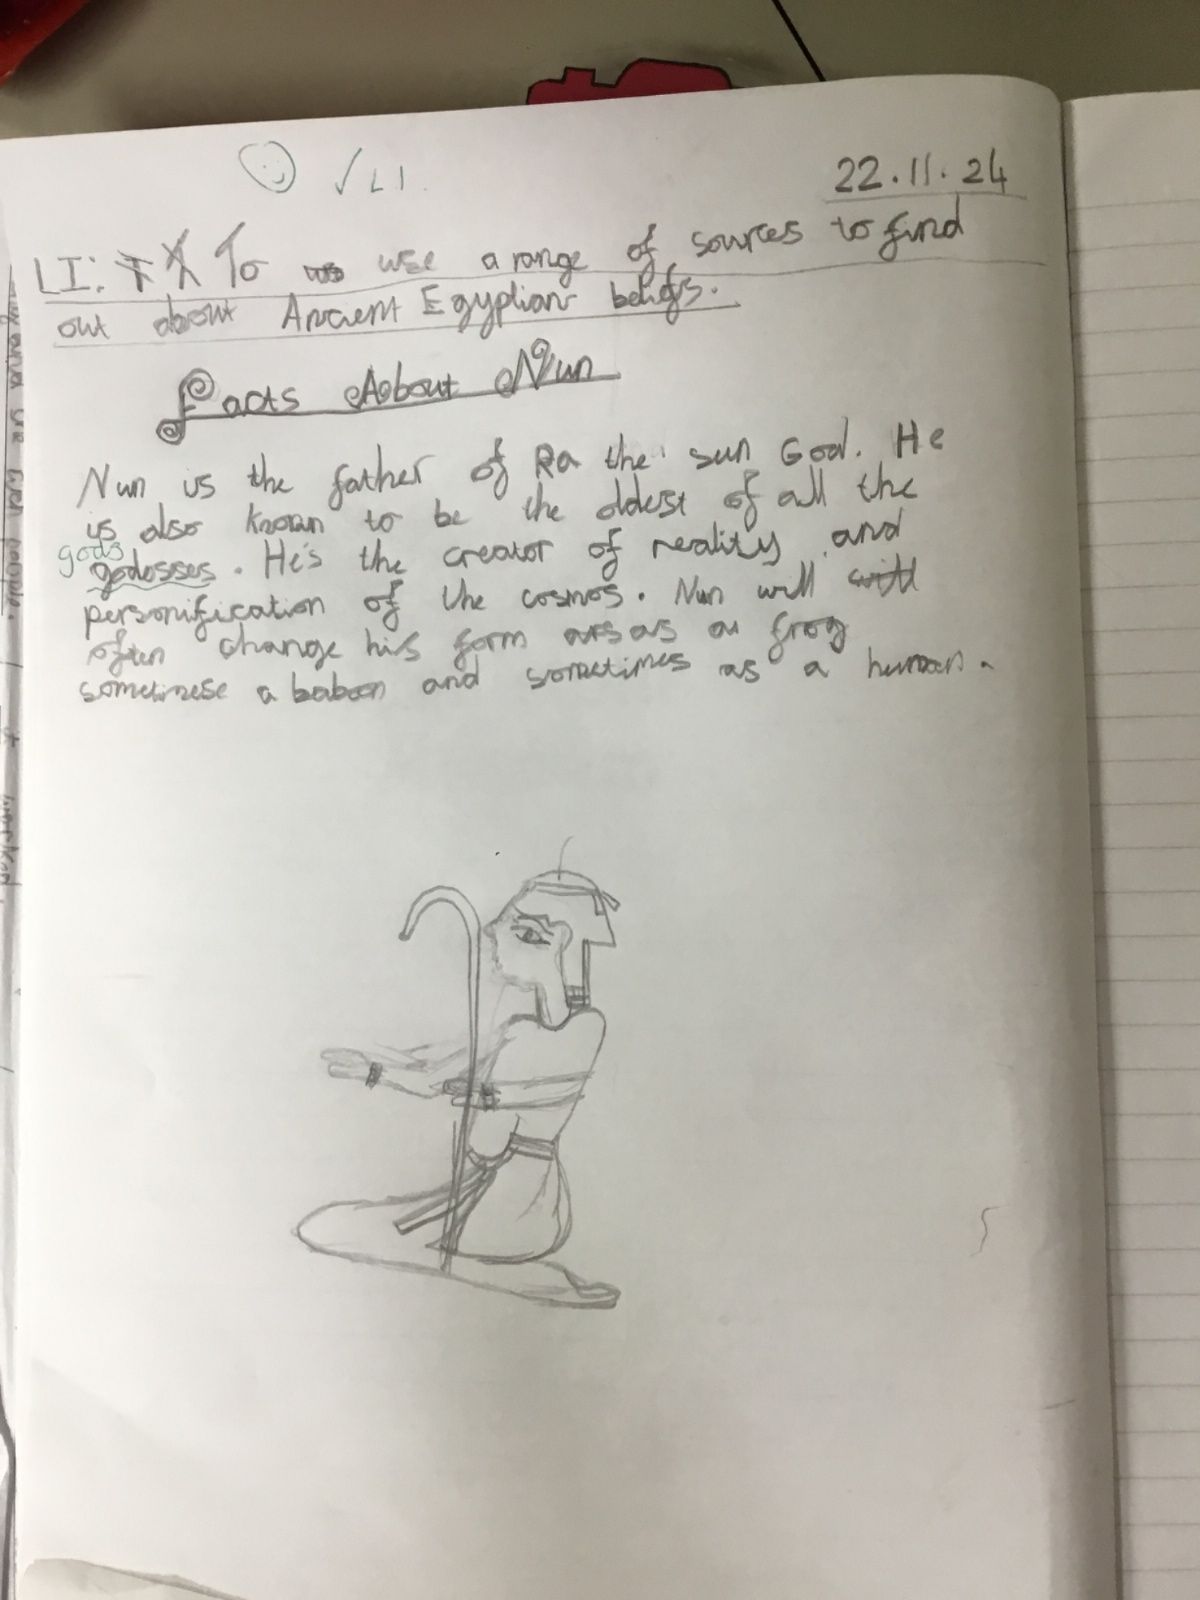 ✓ LI.
22.11.24
LI: To use a range of sources to find
out about Ancient Egyptian beliefs.
Facts About Nun
Nun is the father of Ra the sun God. He
is also known to be the oldest of all the
gods
godosses. He's the creator of reality and
personification of the cosmos. Nun will will
often change his form as as a frog
sometimese a baboon and sometimes as a human.